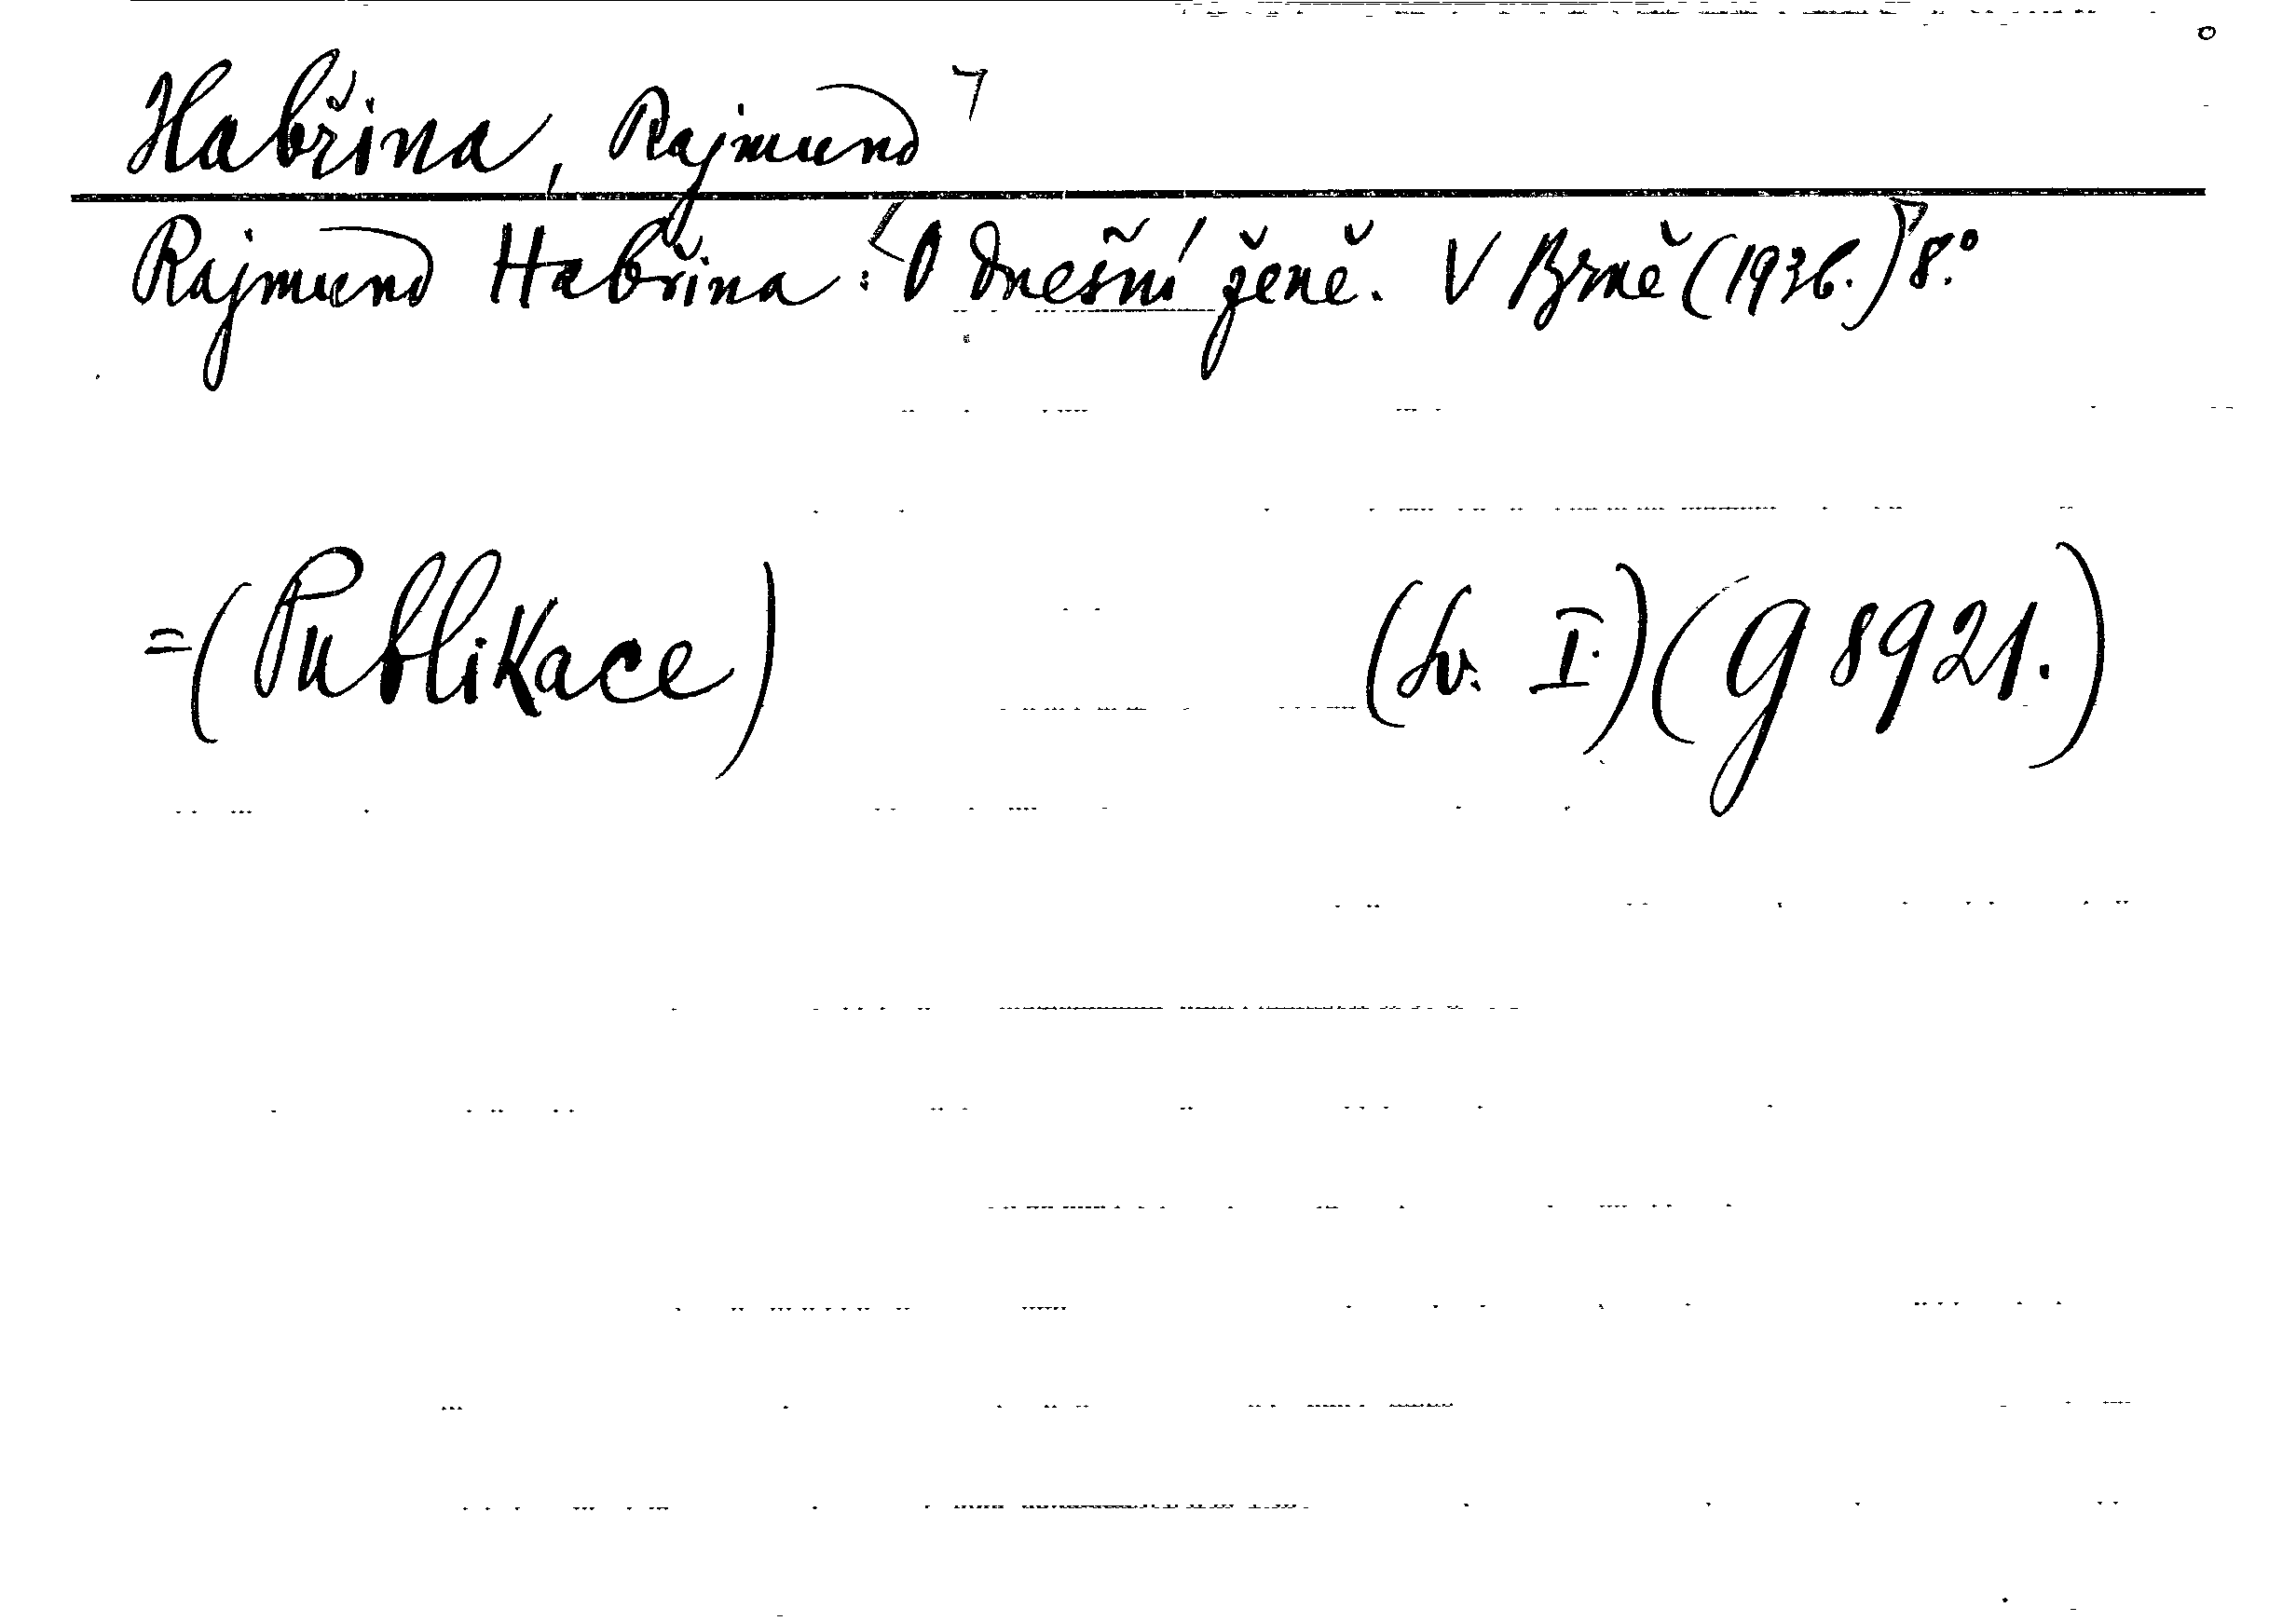 Habřina, Rajmund
Rajmund Habřina: O dnešní ženě. V Brně (1936.) 8.°
=(Publikace) (sv. I.) (g 8921.)